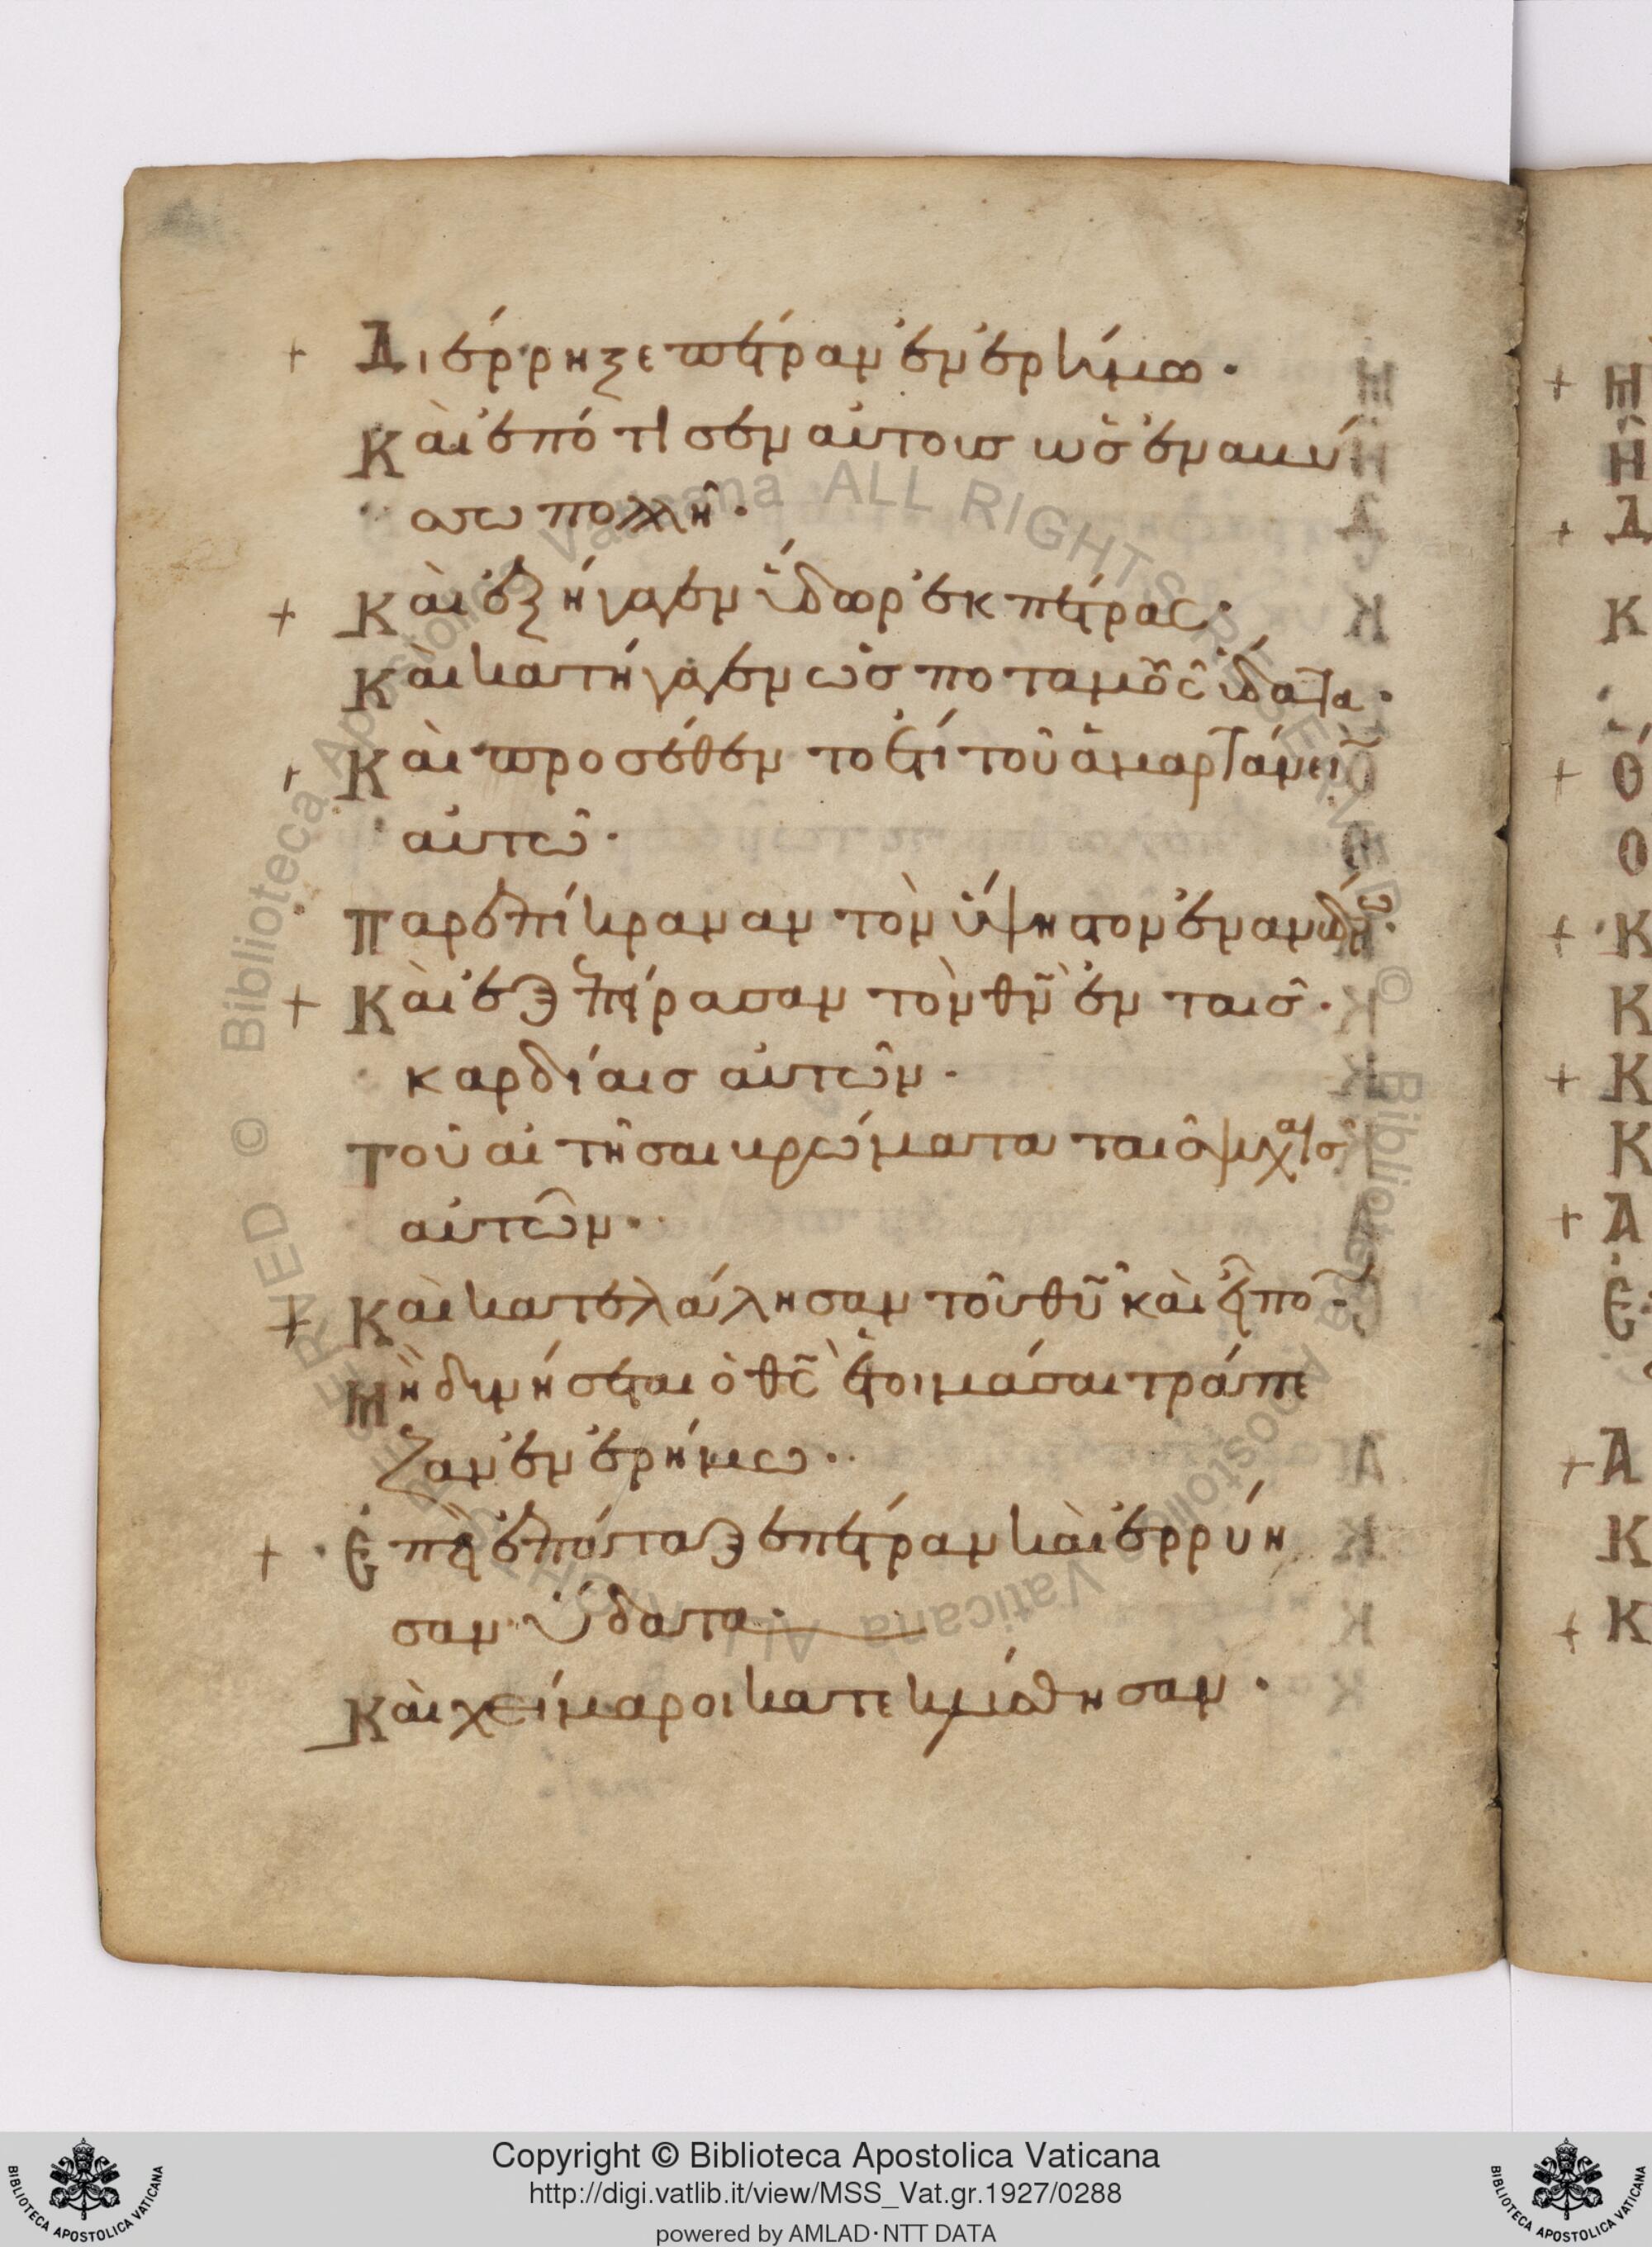 + Διέρρηξε πέτραν ἐν ἐρήμω·
Καὶ ἐπότισεν αὐτοισ ὡσ ἐν ἀβύ
σσω πολλῆ·
+ Καὶ ἐξήγαγεν ὕδωρ ἐκ πέτρας·
Καὶ κατήγαγεν ὡσ ποταμοὺς ὕδατα·
+ Καὶ προσέθεν το ἔτι τοῦ ἁμαρτάνειν
αὐτῶ·
Παρεπίκραναν τὸν ὕψηστον ἐν ἀνύδρω·
+ Καὶ ἐξεπείρασαν τὸν θν̃ ἐν ταισ·
καρδίαισ αὐτῶν·
Τοῦ αἰτῆσαι βρώματα ταισ ψυχαῖσ
αὐτῶν·
+ Καὶ κατελάλησαν τοῦ θυ̃ καὶ εἶπον·
Μὴ δυνήσεται ὁ θς̃ ἑτοιμάσαι τράπε
ζαν ἐν ἐρήμω·
+ Ἐπεὶ ἐπάταξε πέτραν καὶ ἐρρύη
σαν ὕδατα·
Καὶ χείμαροι κατεκλύσθησαν·
Μ
Η
+ Μ
Η
+ Δ
Κ
+ Ο
Ο
+ Κ
Κ
+ Κ
Κ
+ Α
Ε
+ Α
Κ
+ Κ
Copyright © Biblioteca Apostolica Vaticana
http://digi.vatlib.it/view/MSS_Vat.gr.1927/0288
powered by AMLAD·NTT DATA
BIBLIOTECA APOSTOLICA VATICANA
BIBLIOTECA APOSTOLICA VATICANA